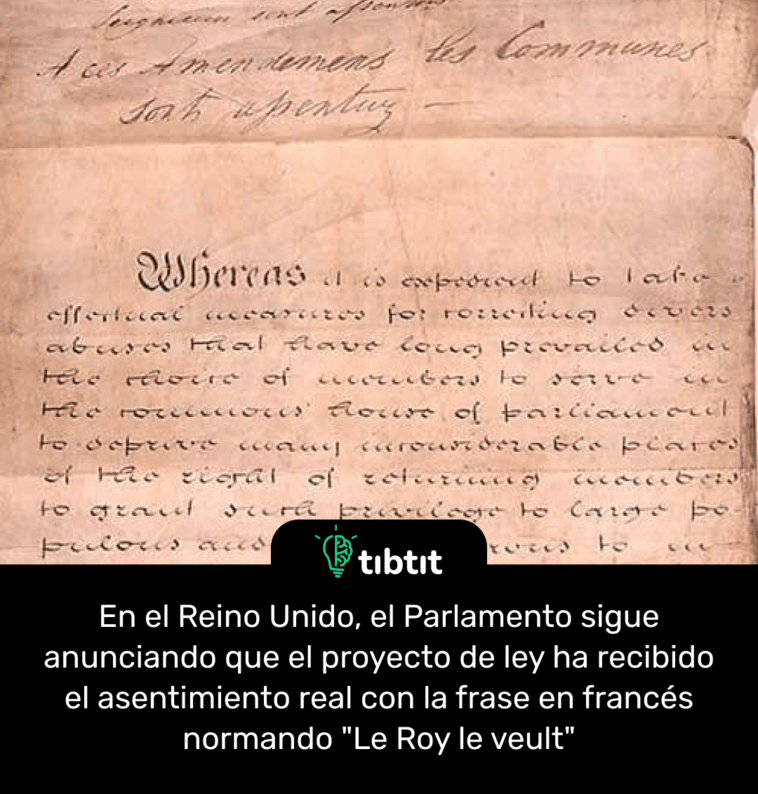 Seigneurs sont assentus
A ces Amendemens les Communes
sont assentuz —
Whereas it is expedient to take
effectual measures for correcting divers
abuses that have long prevailed in
the choice of members to serve in
the commons' house of parliament
to deprive many inconsiderable places
of the right of returning members
to grant such privilege to large po-
pulous and
to in
tibtit
En el Reino Unido, el Parlamento sigue
anunciando que el proyecto de ley ha recibido
el asentimiento real con la frase en francés
normando "Le Roy le veult"